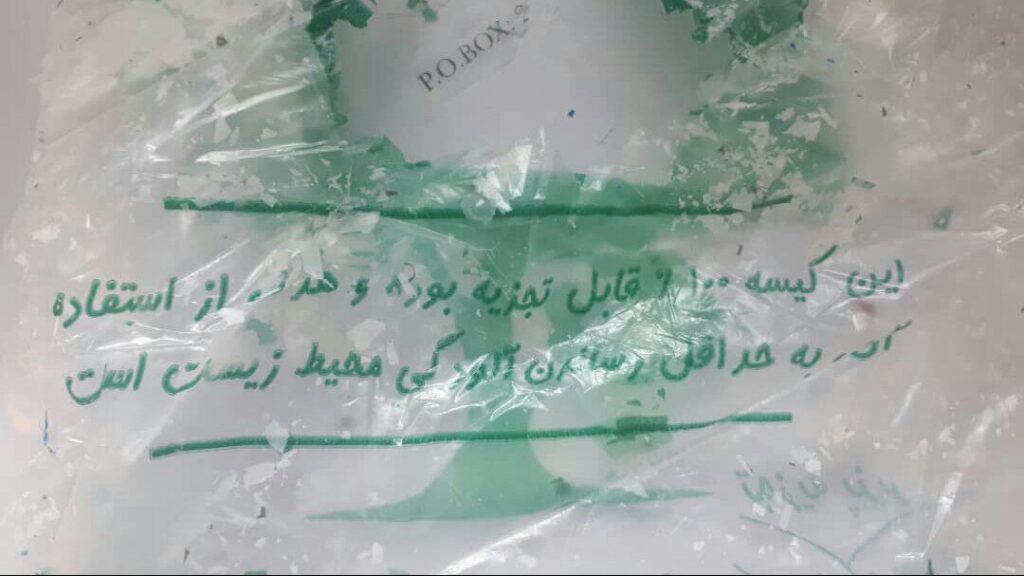 P.O.BOX:
این کیسه ۱۰۰٪ قابل تجزیه بوده و هدف از استفاده
آن، به حداقل رساندن آلودگی محیط زیست است